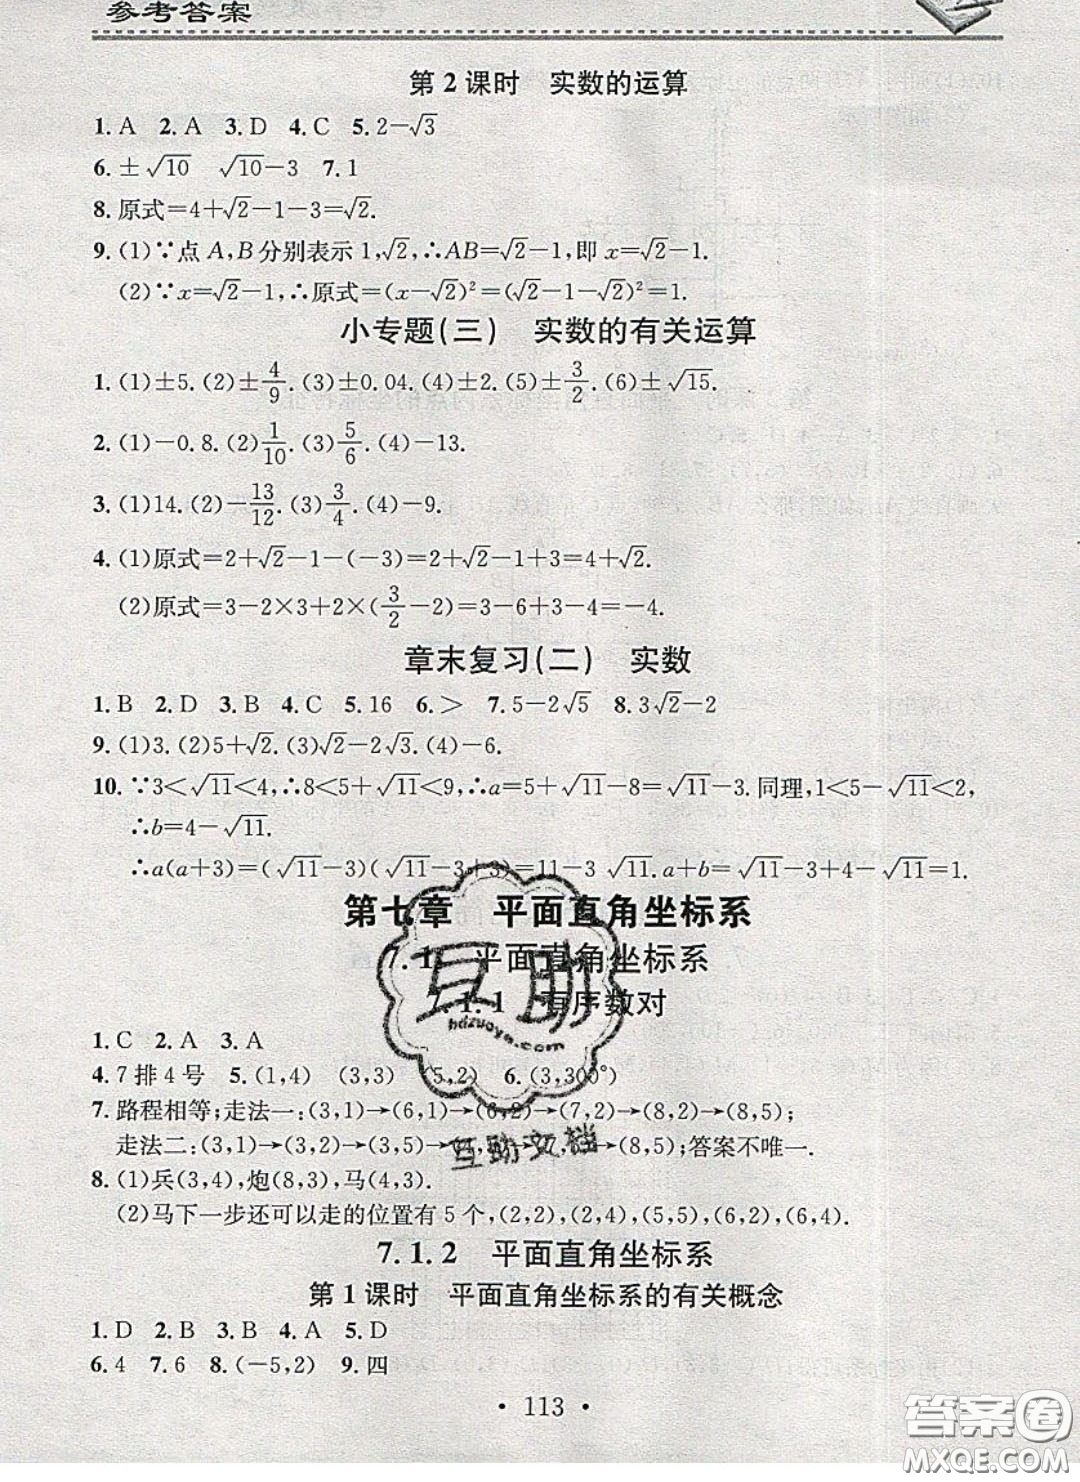 参考答案
第2课时　实数的运算
1. A　2. A　3. D　4. C　5. 2－√3
6. ±√10　√10－3　7. 1
8. 原式＝4＋√2－1－3＝√2.
9. (1)∵点A,B分别表示1,√2,∴AB＝√2－1,即x＝√2－1.
(2)∵x＝√2－1,∴原式＝(x－√2)²＝(√2－1－√2)²＝1.
小专题(三)　实数的有关运算
1. (1)±5. (2)±4/9. (3)±0.04. (4)±2. (5)±3/2. (6)±√15.
2. (1)－0.8. (2)1/10. (3)5/6. (4)－13.
3. (1)14. (2)－13/12. (3)3/4. (4)－9.
4. (1)原式＝2＋√2－1－(－3)＝2＋√2－1＋3＝4＋√2.
(2)原式＝3－2×3＋2×(3/2－2)＝3－6＋3－4＝－4.
章末复习(二)　实数
1. B　2. D　3. B　4. C　5. 16　6. ＞　7. 5－2√5　8. 3√2－2
9. (1)3. (2)5＋√2. (3)√2－2√3. (4)－6.
10. ∵3＜√11＜4,∴8＜5＋√11＜9,∴a＝5＋√11－8＝√11－3. 同理,1＜5－√11＜2,
∴b＝4－√11.
∴a(a＋3)＝(√11－3)(√11－3＋3)＝11－3√11. a＋b＝√11－3＋4－√11＝1.
第七章　平面直角坐标系
7.1　平面直角坐标系
7.1.1　有序数对
1. C　2. A　3. A
4. 7排4号　5. (1,4)　(3,3)　(5,2)　6. (3,300°)
7. 路程相等;走法一:(3,1)→(6,1)→(6,2)→(7,2)→(8,2)→(8,5);
走法二:(3,1)→(3,2)→(3,5)→ →(8,5);答案不唯一.
8. (1)兵(3,4),炮(8,3),马(4,3).
(2)马下一步还可以走的位置有5个,(2,2),(2,4),(5,5),(6,2),(6,4).
7.1.2　平面直角坐标系
第1课时　平面直角坐标系的有关概念
1. D　2. B　3. B　4. A　5. D
6. 4　7. 6　8. (－5,2)　9. 四
• 113 •
互助
hdzuoye.com
互助文档
答案圈
MXQE.COM